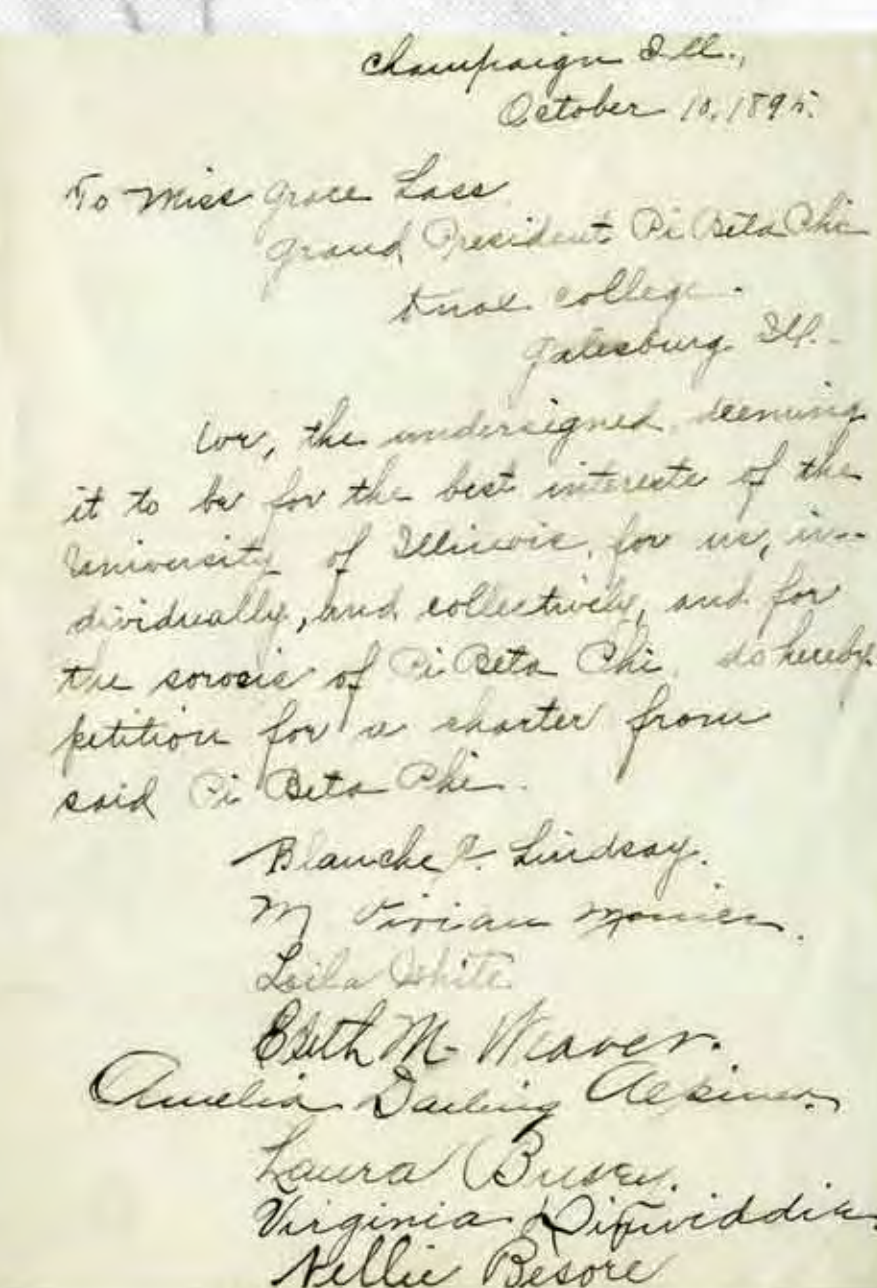 Champaign Ill.,
October 10, 1895.
To Miss Grace Lass
Grand President Pi Beta Phi
Knox college.
Galesburg Ill.
We, the undersigned, deeming
it to be for the best interests of the
University of Illinois, for us, in-
dividually, and collectively, and for
the sorosis of Pi Beta Phi, do hereby
petition for a charter from
said Pi Beta Phi.
Blanche Lindsay.
M Vivian Monier.
Leila White
Edith M. Weaver.
Amelia Darling Alpiner.
Laura Busey.
Virginia Dinwiddie
Nellie Besore